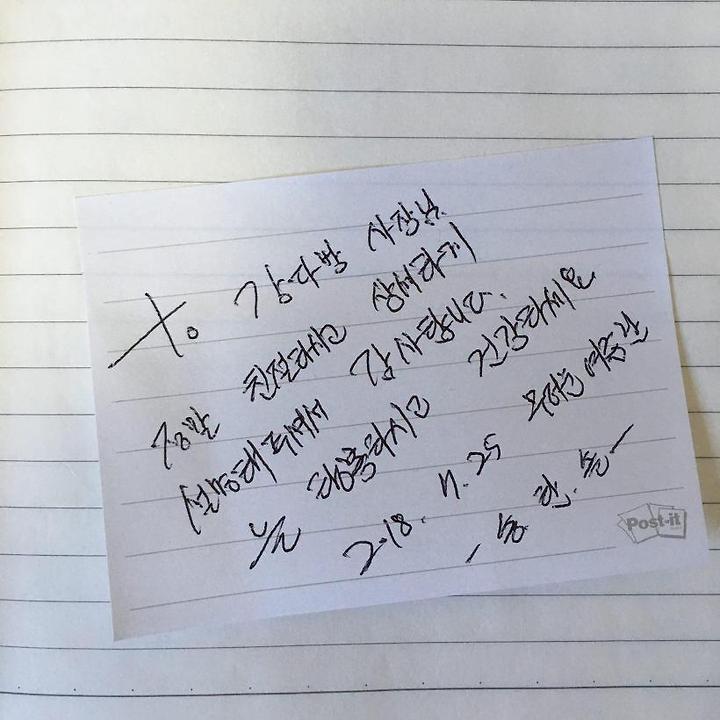 To 강다방 사장님
정말 친절하시고 상세하게
설명해 주셔서 감사합니다.
늘 행복하시고 건강하세요
2018. 7. 25 무더운 여름날
Post-it